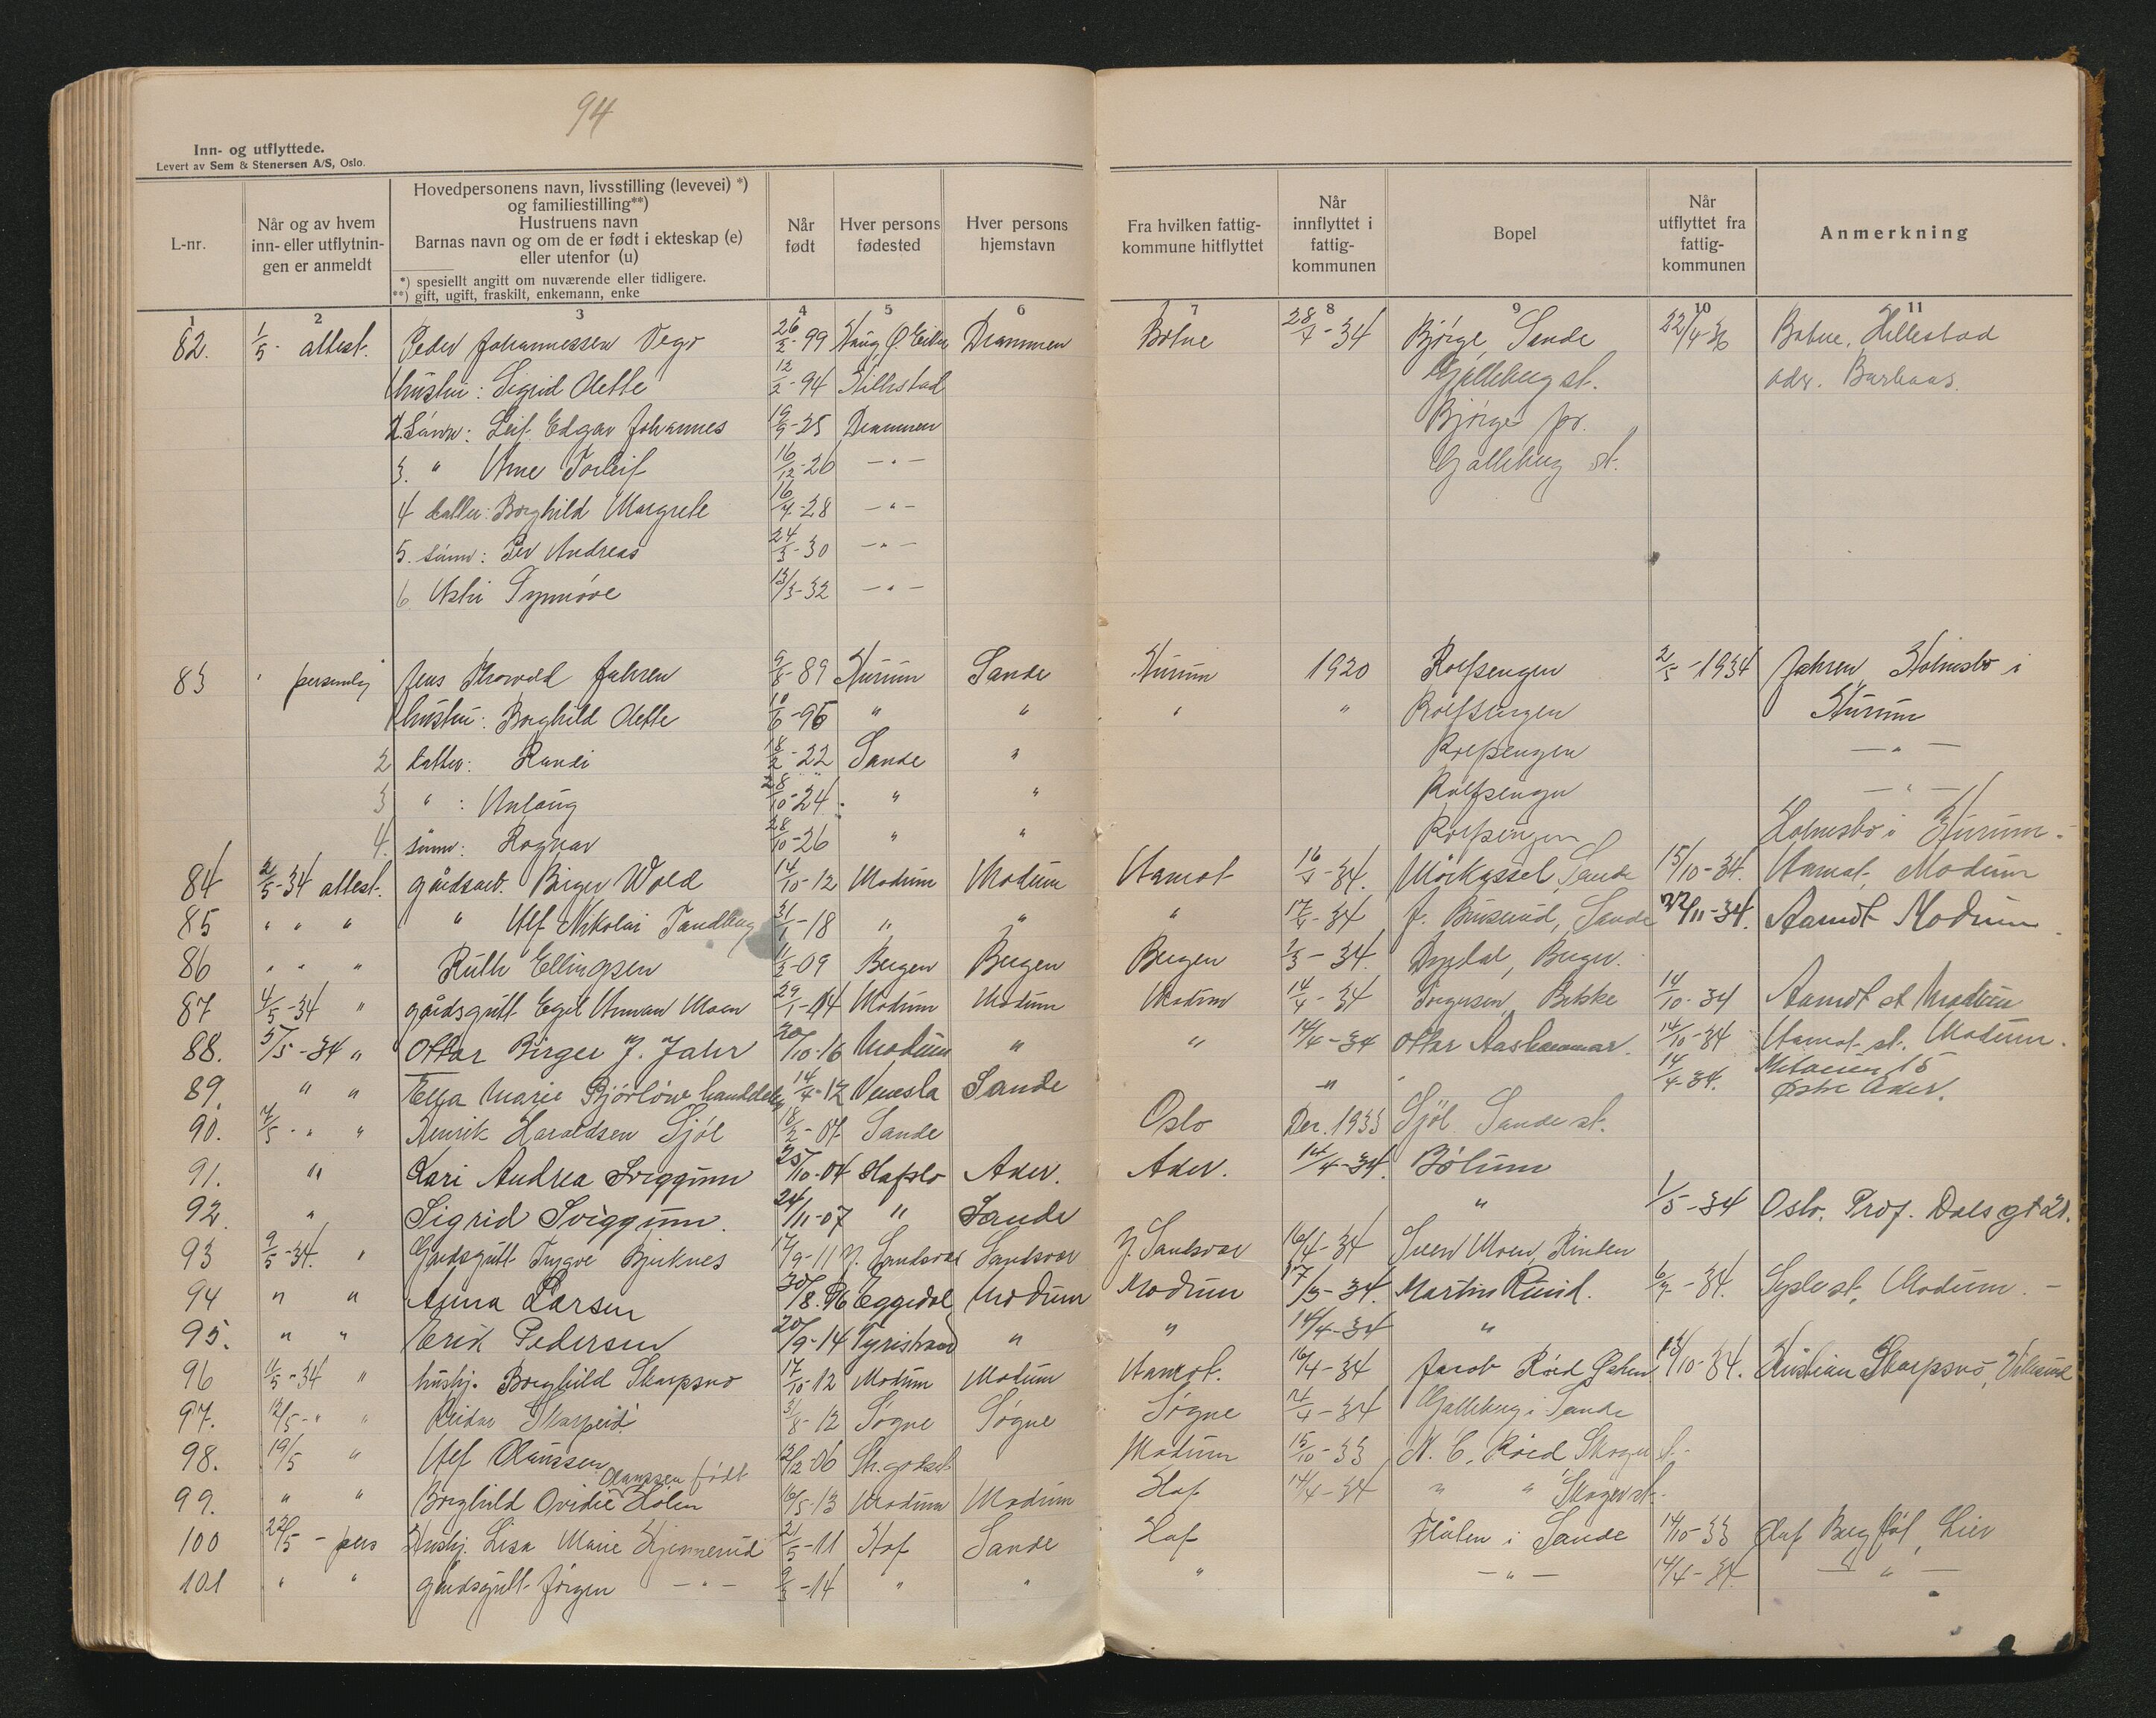 94
Inn- og utflyttede.
Levert av Sem & Stenersen A/S, Oslo.
L-nr.
Når og av hvem inn- eller utflytnin-gen er anmeldt
Hovedpersonens navn, livsstilling (levevei) *) og familiestilling**)
Hustruens navn
Barnas navn og om de er født i ekteskap (e) eller utenfor (u)
*) spesiellt angitt om nuværende eller tidligere.
**) gift, ugift, fraskilt, enkemann, enke
Når født
Hver persons fødested
Hver persons hjemstavn
Fra hvilken fattig-kommune hitflyttet
Når innflyttet i fattig-kommunen
Bopel
Når utflyttet fra fattig-kommunen
Anmerkning
1 2 3 4 5 6 7 8 9 10 11
82. 1/5 - attest. Peder Johannessen 26/2-99 Drammen Botne 28/4-34 Bjørge Sande 22/4-36 Botne, Hillestad
1 hustru: Sigrid Olette 12/2-94 Hillestad Galleberg st. adr.
2. Sønn: Leif Edgar Johannes 19/9-25 Drammen Bjørge pr.
3. " Arne Torleif 16/12-26 -"- Galleberg st.
4 datter: Borghild Margrete 16/4-28 -"-
5. sønn: Per Andreas 24/3-30 -"-
6 Synnøve 13/3-32 -"-
83 " personlig Jens Thorvald Jahren 9/8-89 Hurum Sande Hurum 1920 Rolfsengen 2/5-1934 Jahren, Holmsbo i
1 hustru: Borghild Olette " " " " Rolfsengen Hurum
2 datter: Randi 18/2-22 Sande " Rolfsengen -"-
3 " : Anlaug 28/10-24 " " Rolfsengen -"-
4. sønn: Ragnar 28/10-26 " " Rolfsengen Holmsbo i Hurum.
84 2/5-34 attest. gårdsarb. Birger Wold 14/10-12 Modum Modum Aamot 16/4-34. Sande 15/10-34. Aamot, Modum
85 " " " " Alf Nikolai Tandberg 31/1-18 " " " 17/4-34 Sande 22/11-34. Aamot Modum
86 " " " Ruth Ellingsen 11/3-09 Bergen Bergen Bergen 2/3-34.
87 4/5-34 " gårdsgutt Egil Moen 29/1-14 Modum Modum Modum 14/4-34 Torgersen, Bekke 14/10-34 Aamot st Modum
88. 5/5-34 " Ottar Birger J. Jahr 20/10-16 Modum " " 14/4-34 Ottar Aashammar. 14/10-34 Aamot st. Modum.
89. " " Ella Marie 14/4-12 Vennsla Sande " 14/4-34. Østre Aker.
90. 7/5 - " " Henrik Haraldsen Sjøl 18/2-07 Sande Oslo Des. 1933 Sjøl Sande st.
91. " Kari Andrea Sviggum 25/10-04 Hafslo Aker. Aker. 14/4-34. Bølum
92. " Sigrid Sviggum. 24/11-07 " Sande " 1/5-34 Oslo. Prof. Dals gt 21.
93 9/5-34. " Gårdsgutt Trygve Bjerknes 17/9-11 Y. Sandsvær Sandsvær Y. Sandsvær 16/4-34 Sven Moen, Rinden
94 " " Anna Larsen 30/8.96 Eggedal Modum Modum 17/3-34. Martin Ruud. 6/7-34. Sysle st, Modum.
95. " " Erik Pedersen 20/9-14 Tyristrand " " 14/4-34 "
96 11/5-34 " hushj. Borghild Skarpsno 17/10-12 Modum Modum Aamot. 16/4-34 Jacob Røed 13/10-34. Kristian Skarpsno, Vikersund
97. 12/5 - " " Reidar Skarpeid 31/8-12 Søgne Søgne Søgne 12/4-34 Galleberg i Sande
98. 19/5 " Alf Olaussen 12/12-06 Str.godset Modum 15/10-33 N. C. Røed Skoger st.
Olaussen født
99. " " Borghild Ovidie Holen 16/5-13 Modum Modum Hof 14/4-34 " " Skoger st.
100 22/5 - pers Hushj. Lisa Marie Hjemmerud 21/5-11 Hof Sande Hof Hålen i Sande 14/10-33 Olaf Bergfløt, Lier
101 " " gårdsgutt Jørgen -"- 9/3-14 " " " -"- 14/4-34 -"-